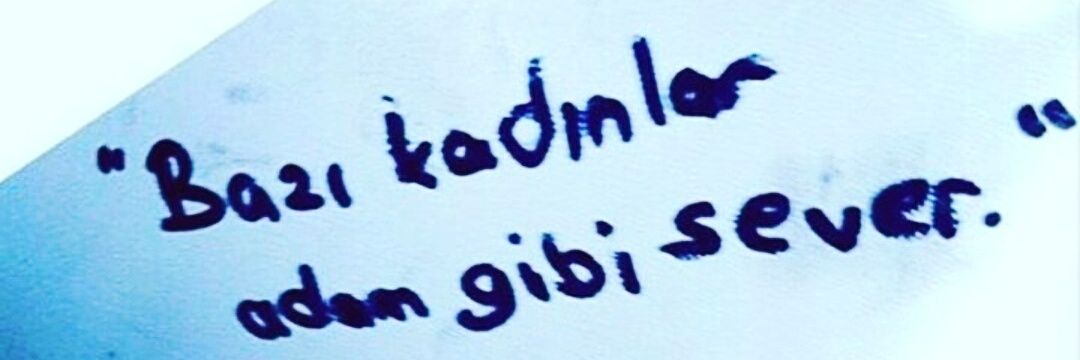 "Bazı kadınlar
adam gibi sever."